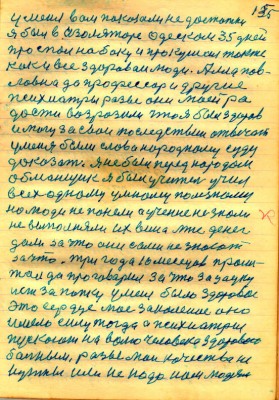 у меня вам показали не достатки
я был в изоляторе Одеском 35 дней
простоял на боку и прокушал также
как и все здоровыи люди. Алла пав-
ловна да професор и другие
психиатры разве они моей ра
дости возразили что я был здоров
и могу за свои последствия отвечать
у меня были слова народному суду
доказать. Я не был перед народом
обманщик я был учител учил
всех одному умному полезному
но люди не поняли а учение не знали
не выполняли их вина мне денег
дали за это они сами не знают
за что. Три года 10 месяцев прош-
тое да проговарил за что за науку
за у меня было здоровое
Это сердце мое закаленое оно
имело силу тогда а психиатрии
пускают на волю человека здорового
больным, разве мои качества не
нужны или не надо нам людям